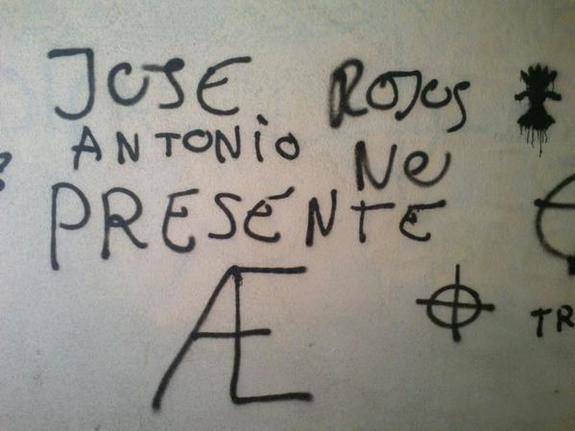 JOSE
ANTONIO
PRESENTE
ROJOS
NO
Æ
TR